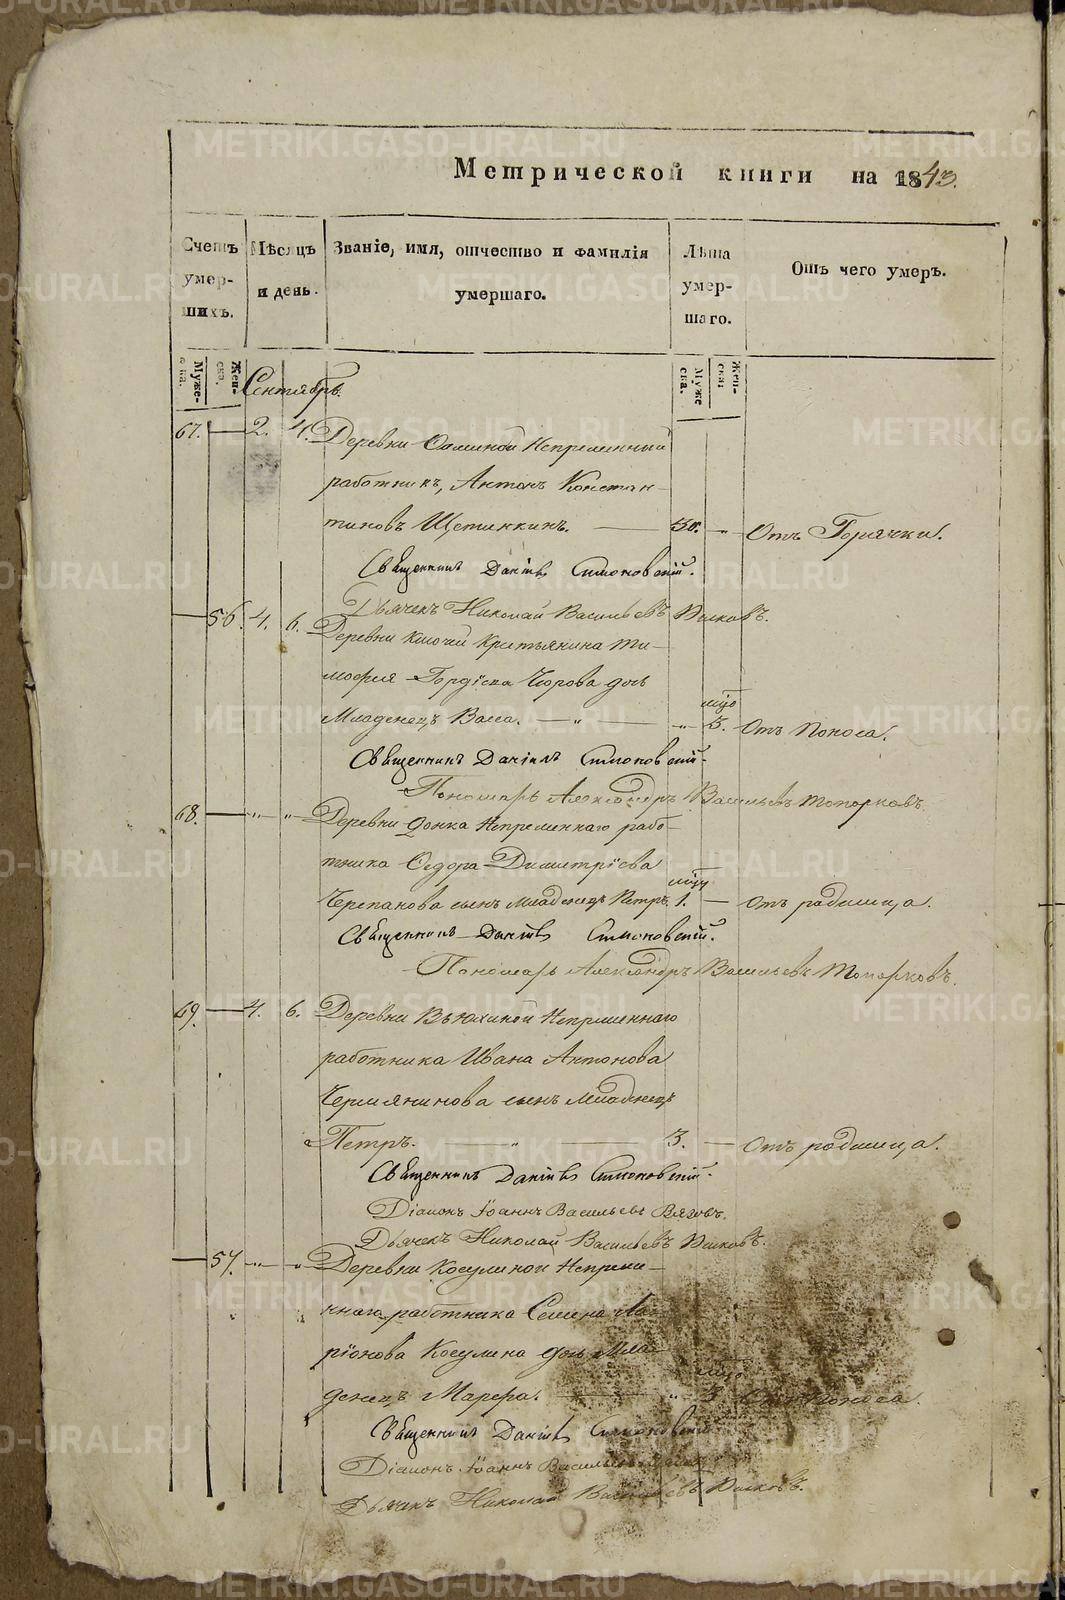 Метрической книги на 1843.
Счетъ умершихъ.
Мѣсяцъ и день.
Званіе, имя, отчество и фамилія умершаго.
Лѣта умершаго.
Отъ чего умеръ.
Мужеска. Женска. Мужеска. Женска.
Сентябрь.
67. — 2. 4. Деревни Непременный
работникъ, Антонъ Констан-
тиновъ Щетинкинъ. — 50. „ Отъ Горячки.
Священникъ Даніилъ Симоновскій.
Дьячекъ Николай Васильевъ
— 56. 4. 6. Деревни Ключи Крестьянина Ти-
мофея Гордѣева дочь
мцо
Младенецъ Васса. — „ — „ 3. Отъ Поноса.
Священникъ Даніилъ Симоновскій.
Пономарь Александръ Васильевъ Топорковъ.
68. — „ „ Деревни Непременнаго рабо-
тника Ѳедора Димитріева
Черепанова сынъ младенецъ Петръ. 1. — Отъ родимца.
Священникъ Даніилъ Симоновскій.
Пономарь Александръ Васильевъ Топорковъ.
69. — 4. 6. Деревни Вьюхиной Непременнаго
работника Ивана Антонова
Чермянинова сынъ младенецъ
Петръ. — „ — 3. — Отъ родимца.
Священникъ Даніилъ Симоновскій.
Діаконъ Іоаннъ Васильевъ
Дьячекъ Николай Васильевъ
— 57. „ „ Деревни Косулиной Непреме-
ннаго работника Семена Ла-
ріонова Косулина дочь Мла-
денецъ Марѳа. — „ 3. Отъ Поноса.
Священникъ Даніилъ Симоновскій.
Діаконъ Іоаннъ Васильевъ
Дьячекъ Николай Васильевъ
METRIKI.GASO-URAL.RU